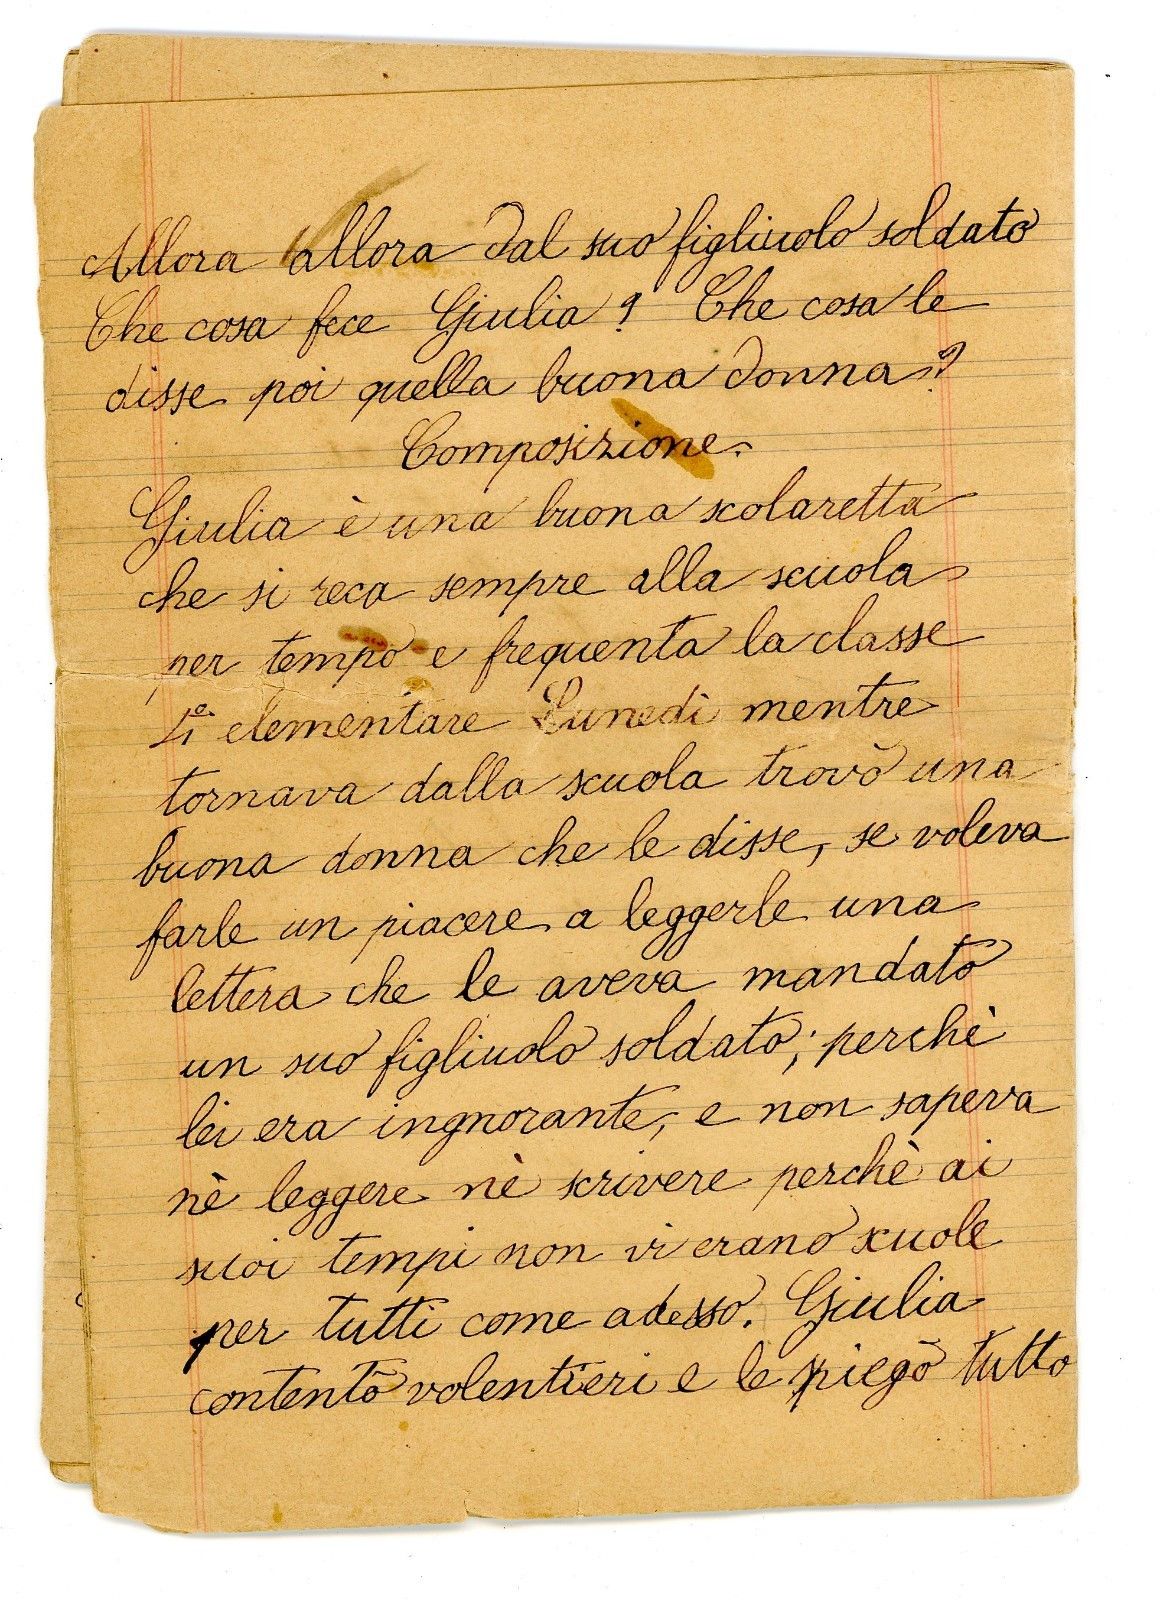 Allora allora dal suo figliuolo soldato
Che cosa fece Giulia? Che cosa le
disse poi quella buona donna?
Composizione.
Giulia è una buona scolaretta
che si reca sempre alla scuola
per tempo e frequenta la classe
elementare Lunedì mentre
tornava dalla scuola trovò una
buona donna che le disse, se voleva
farle un piacere a leggerle una
lettera che le aveva mandato
un suo figliuolo soldato; perchè
lei era ingnorante, e non sapeva
nè leggere nè scrivere perchè ai
suoi tempi non vi erano scuole
per tutti come adesso. Giulia
contentò volentieri e le piegò tutto